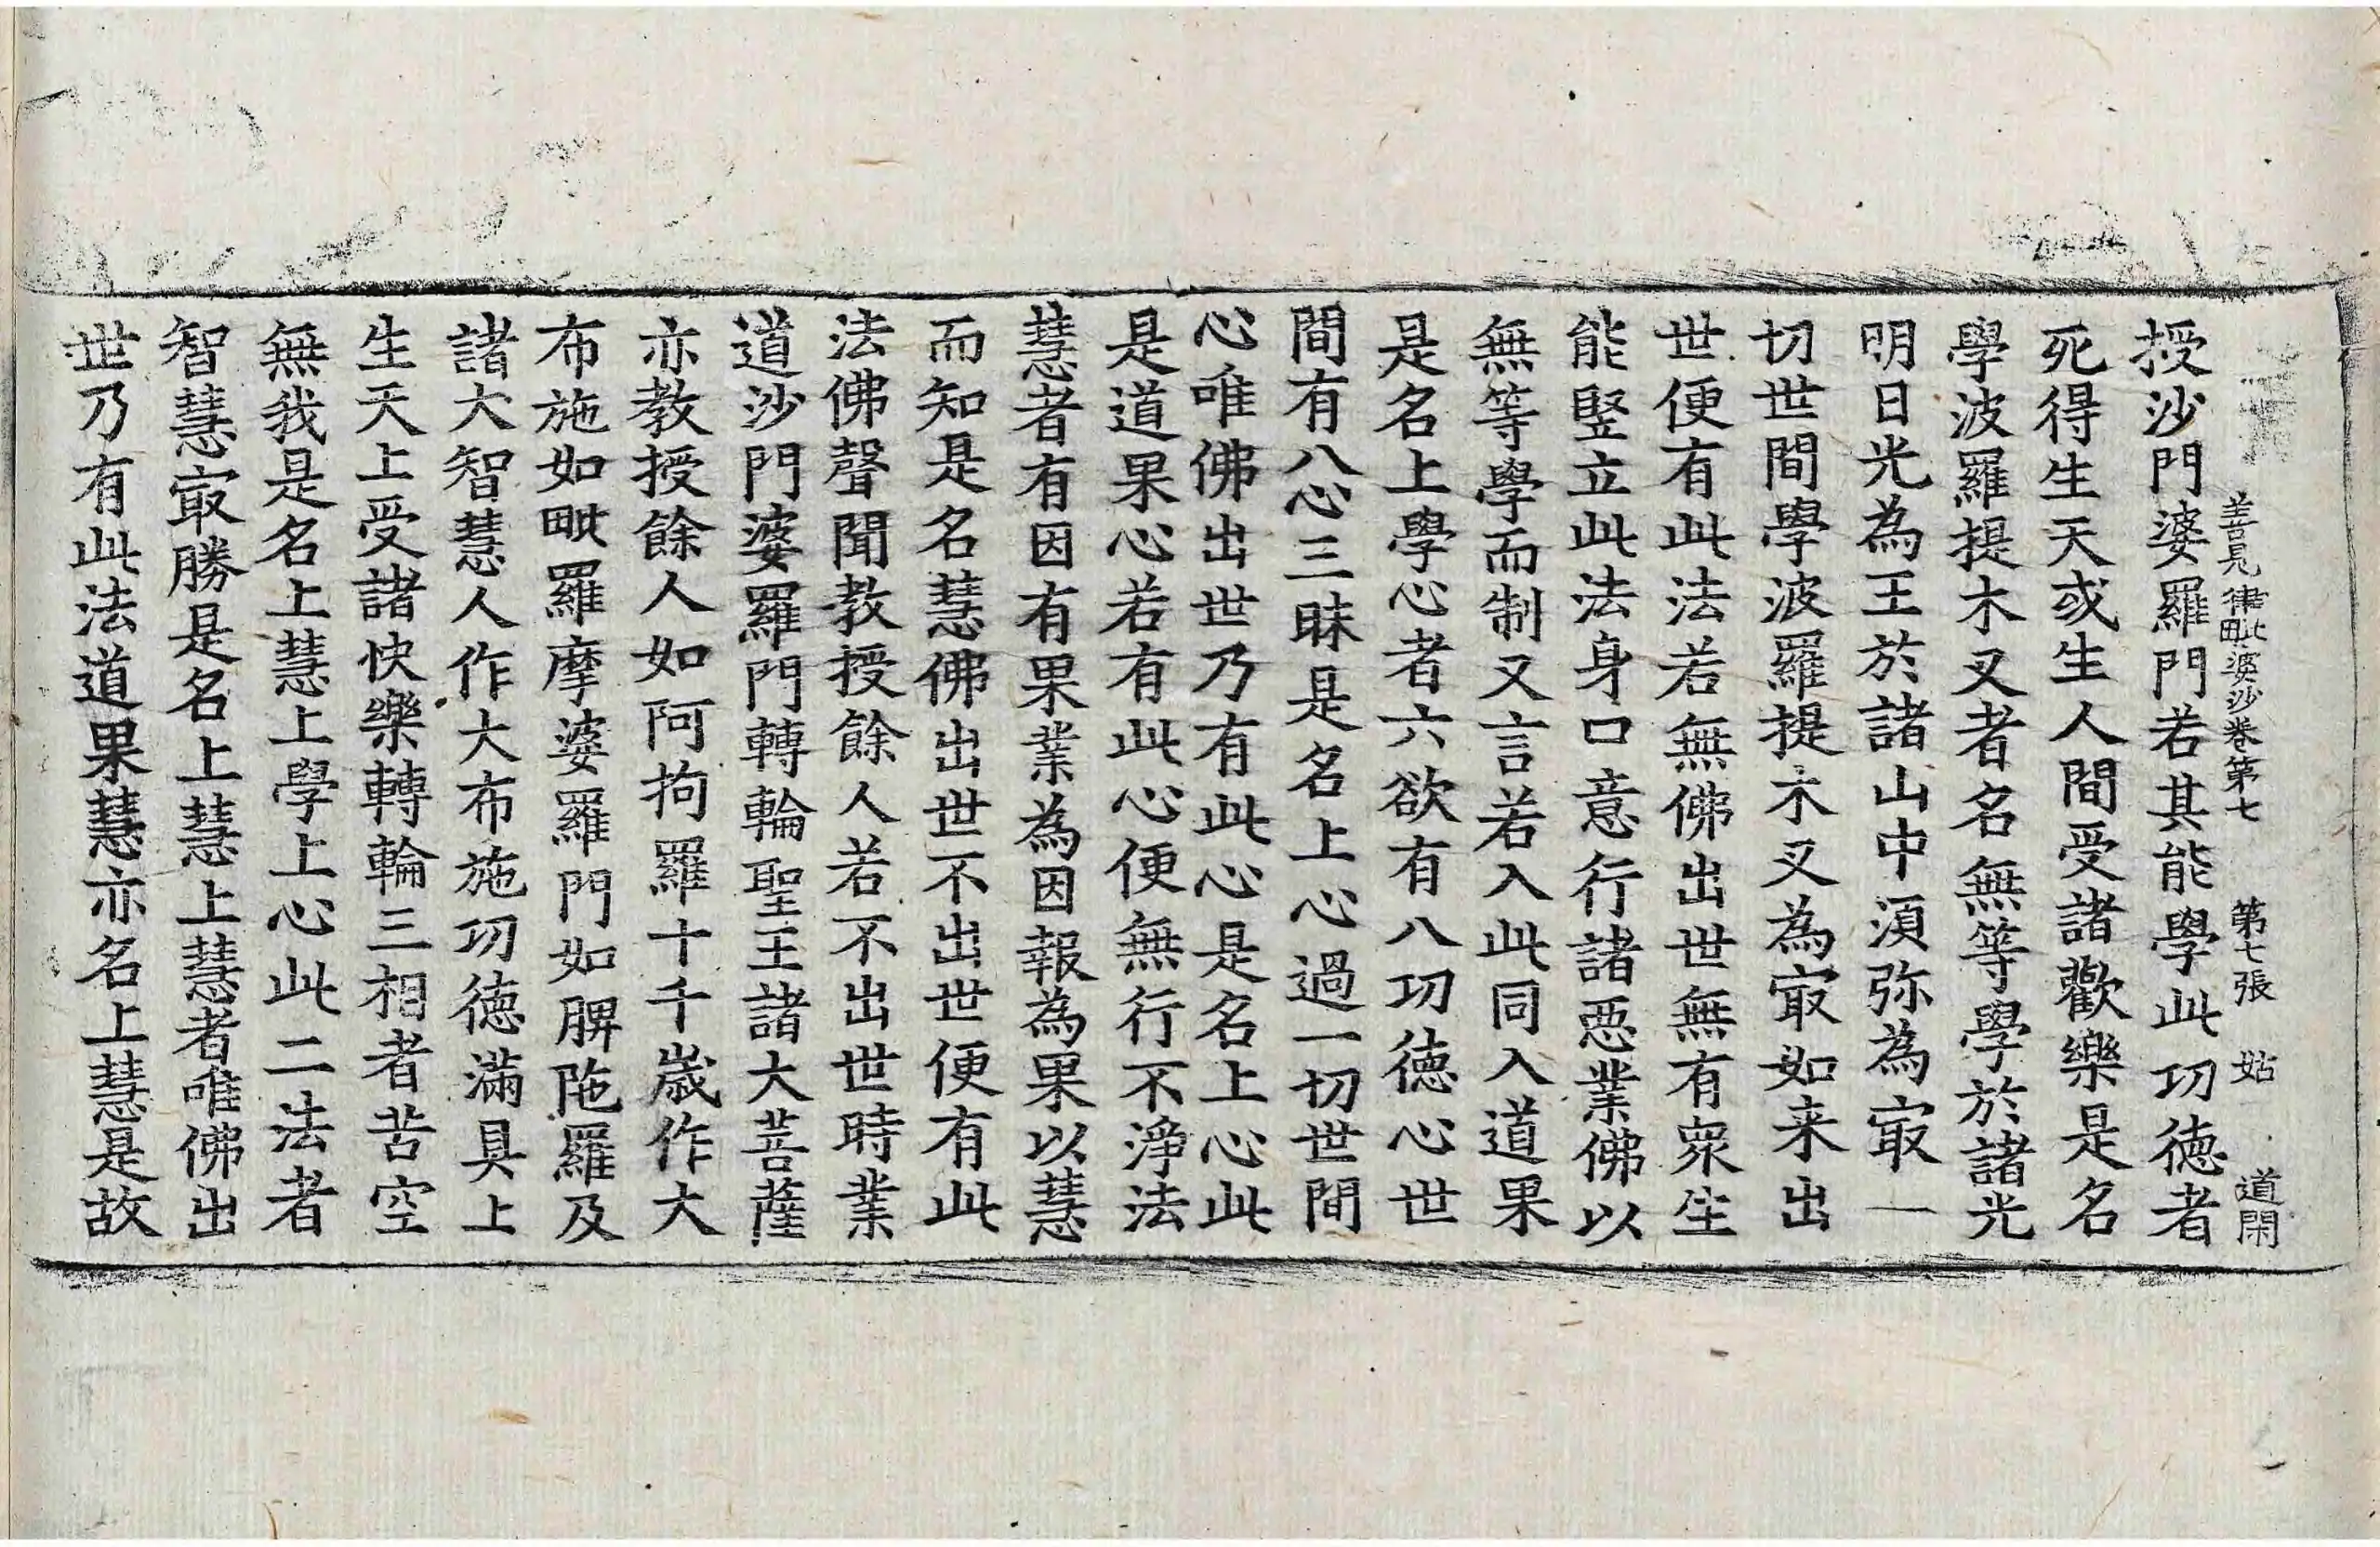 善見律毗婆沙卷第七 第七張 姑 道閑
授沙門婆羅門若其能學此功德者
死得生天或生人間受諸歡樂是名
學波羅提木叉者名無等學於諸光
明日光為王於諸山中須弥為㝡一
切世間學波羅提木叉為㝡如来出
世便有此法若無佛出世無有衆生
能竪立此法身口意行諸惡業佛以
無等學而制又言若入此同入道果
是名上學心者六欲有八功德心世
間有八心三昧是名上心過一切世間
心唯佛出世乃有此心是名上心此
是道果心若有此心便無行不淨法
慧者有因有果業為因報為果以慧
而知是名慧佛出世不出世便有此
法佛聲聞教授餘人若不出世時業
道沙門婆羅門轉輪聖王諸大菩薩
亦教授餘人如阿拘羅十千歲作大
布施如毗羅摩婆羅門如脾陁羅及
諸大智慧人作大布施功德滿具上
生天上受諸快樂轉輪三相者苦空
無我是名上慧上學上心此二法者
智慧㝡勝是名上慧上慧者唯佛出
世乃有此法道果慧亦名上慧是故